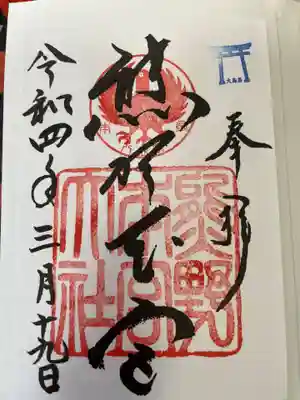 奉拝
熊野本宮
熊野本宮大社
令和四年三月十九日